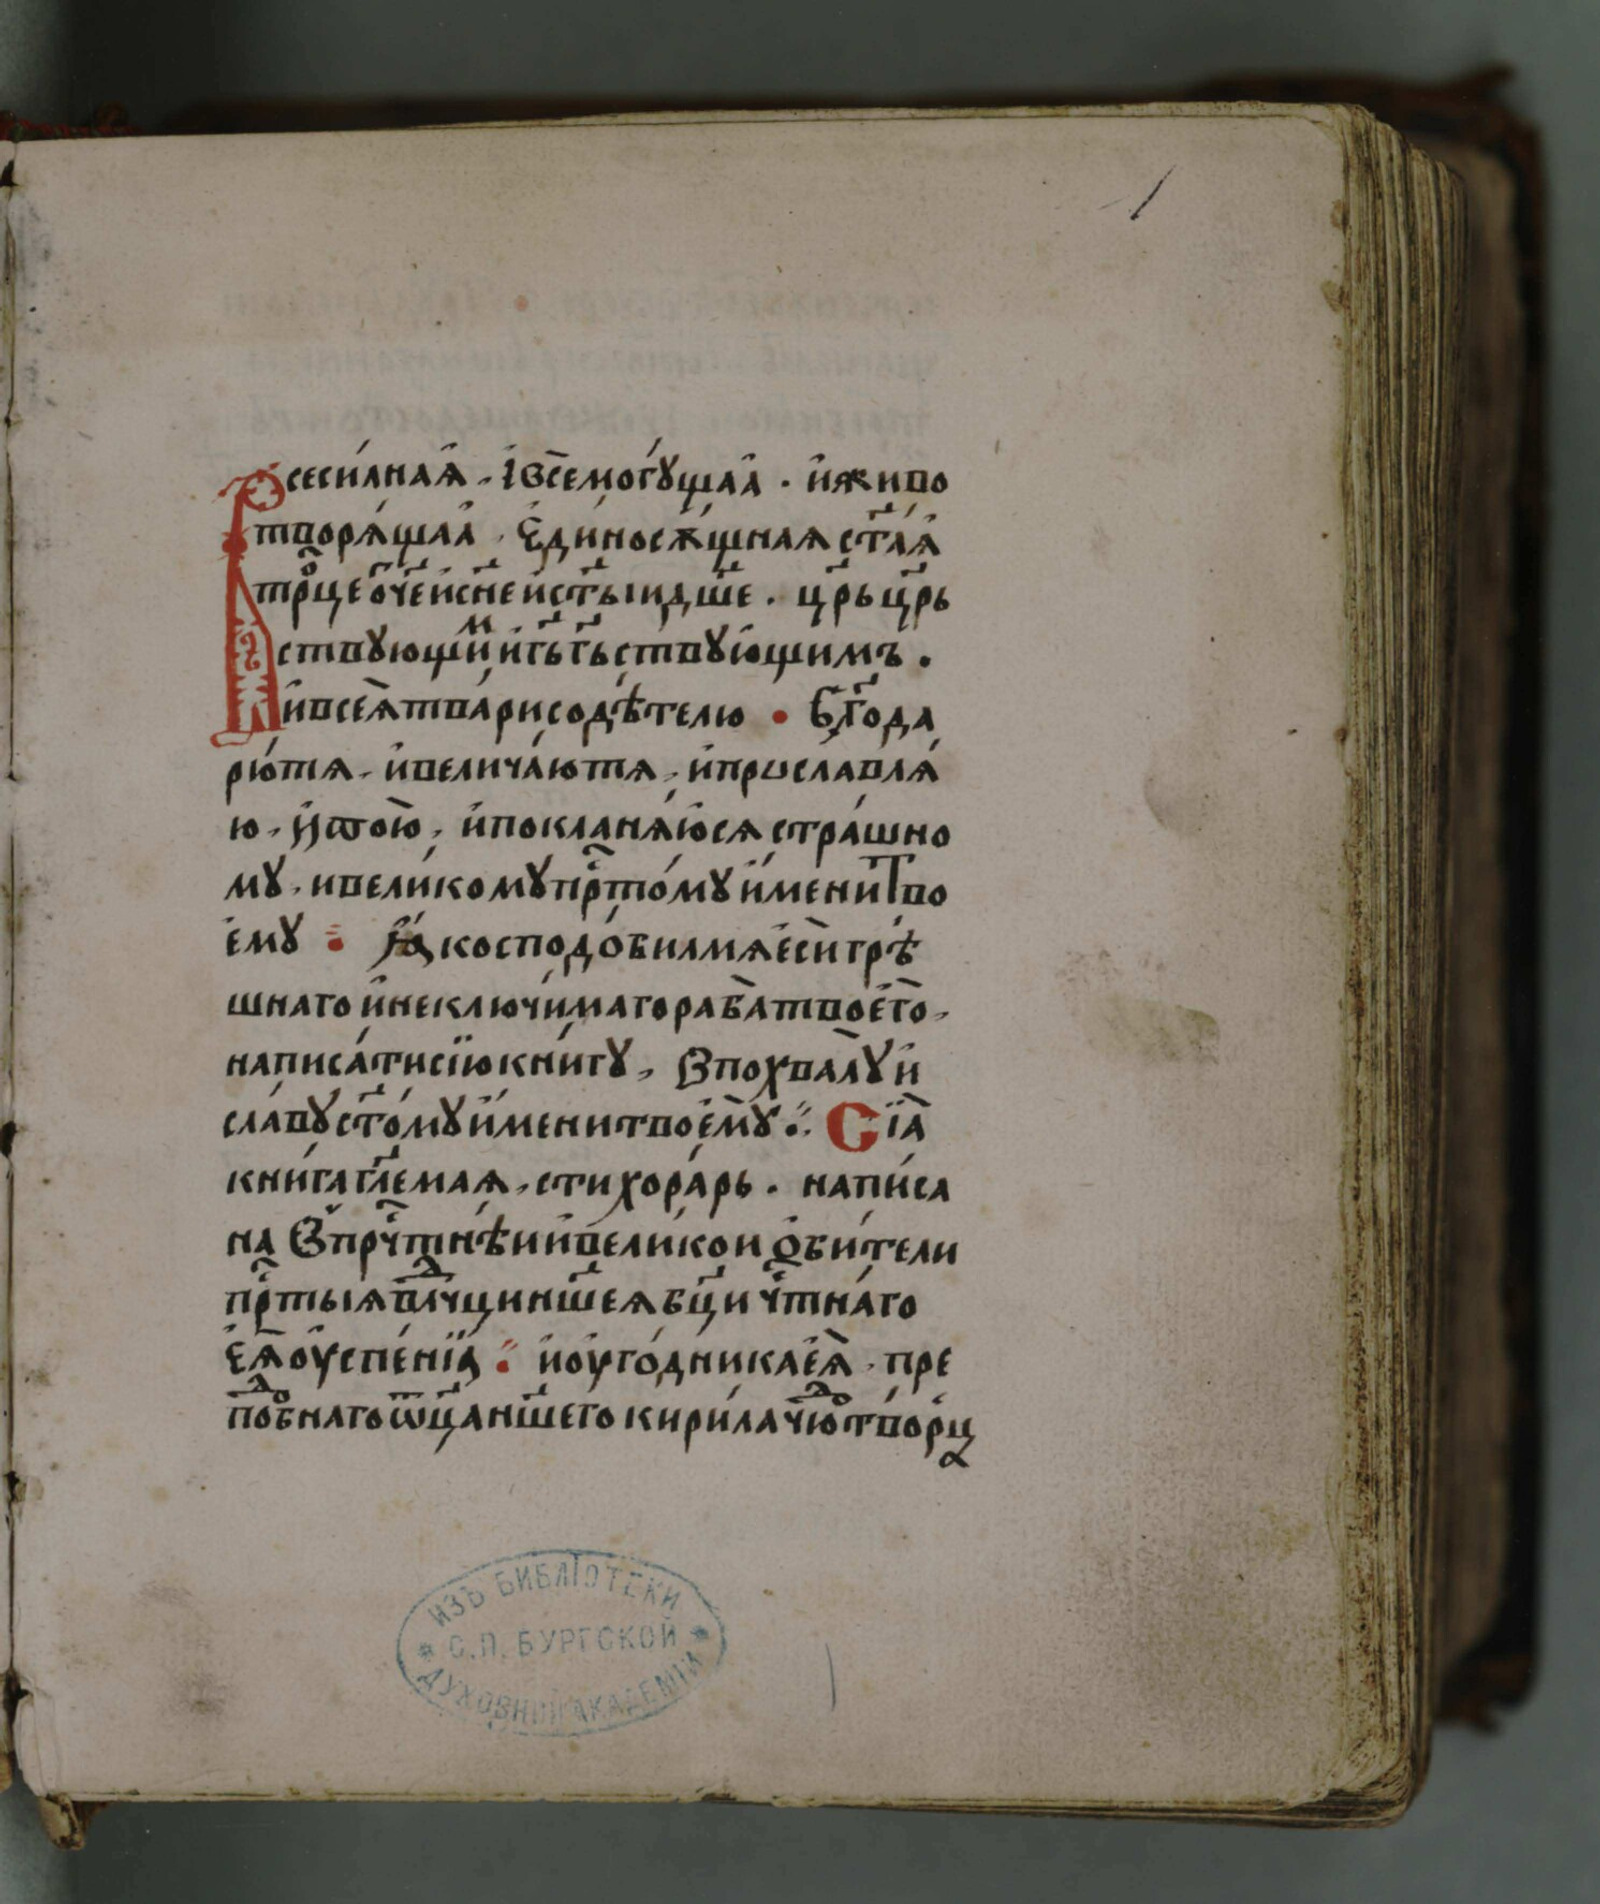 1
Всеси́лнаѧ҆. І҆всемогꙋ́щаѧ҆. и҆живо
творѧ́щаѧ. Е҆ди́носѫ́щнаѧ ст҃а́ѧ
трⷪ҇це ѻ҆ч҃е и҆сн҃е и҆ст҃ыи дш҃е. цр҃ь цр҃ь
ствꙋющиⷨ и҆гь҃ гь҃ствꙋю́щимъ.
и҆всеѧ̀ тва́ри содѣ́телю • Бл҃года
рю́тѧ. и҆велича́ютѧ, и҆просла́влѧ́
ю. и҆ѿою̀, и҆покланѧ́юсѧ стра́шно
мꙋ. ивели́комꙋ прⷭ҇то́мꙋ и҆́мени Тво
е҆мꙋ • Ꙗ҆́ко сподо́билмѧ е҆сѝ грѣ́
шнаго и҆неключи́маго раба̀ твоего̀,
написа́ти сїю кни́гꙋ, Впохвалꙋ̀ и҆
сла́вꙋ ст҃о́мꙋ и҆́мени твоемꙋ̀ ⁘ Сїѧ̀
кни́га гл҃емаѧ, стихора́рь. напи́са
на Впрчⷭ҇тнѣи и҆вели́кои ѻ҆би́тели
прⷭ҇тыѧ влⷣчци нш҃еѧ бц҃и чⷭ҇тна́го
е҆ѧ̀ ѹ҆спе́нїѧ ⁘ и҆ѹ҆го́дника е҆ѧ̀. пре
поⷣбнаго ѿц҃а нш҃его кири́ла чюⷣтво́рца
ИЗЪ БИБЛІОТЕКИ
С.П. БУРГСКОЙ
ДУХОВНОЙ АКАДЕМІИ